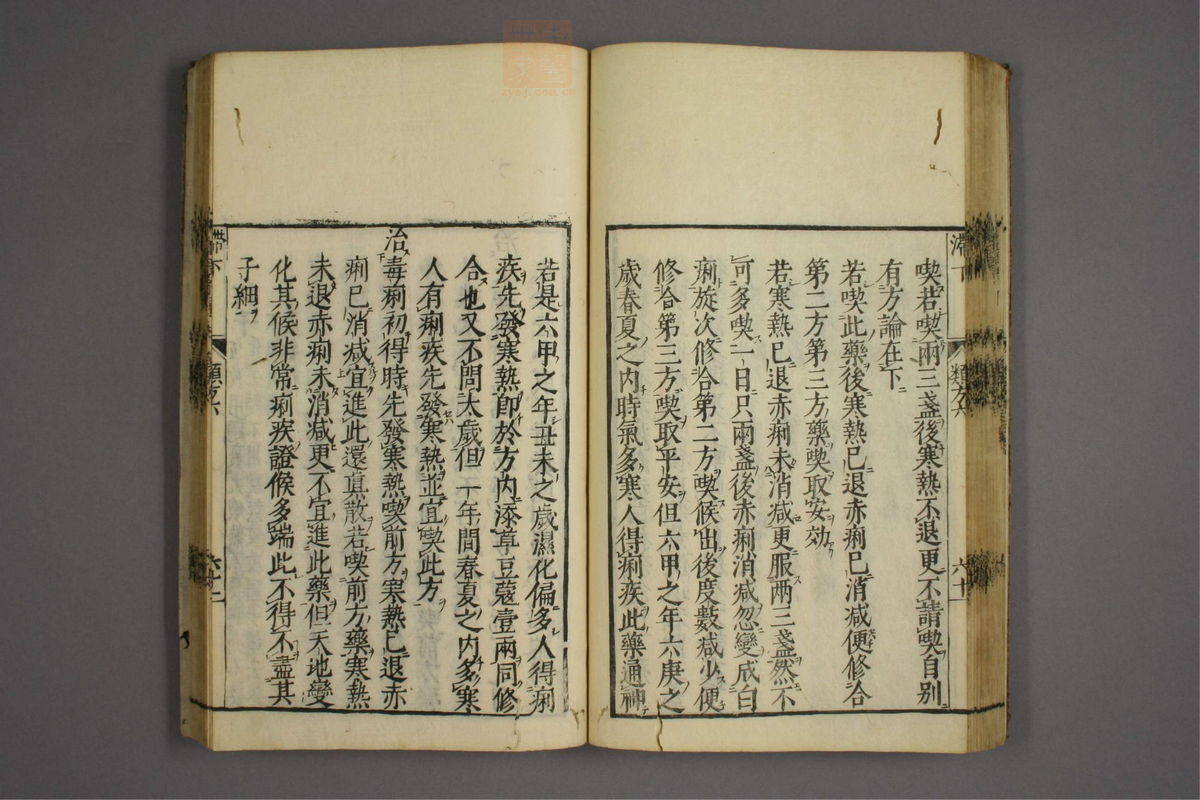 喫若喫兩三盞後寒熱不退更不請喫自別
有方論在下
若喫此藥後寒熱已退赤痢已消减便修合
第二方第三方藥喫取安効
若寒熱已退赤痢未消减更服兩三盞然不
可多喫一日只兩盞後赤痢消减忽變成白
痢旋次修合第二方喫候出後度數减少便
修合第三方喫取平安但六甲之年六庚之
歲春夏之內時氣多寒人得痢疾此藥通神
滯下
類方六
六十一
若是六甲之年丑未之歲濕化偏多人得痢
疾先發寒熱即於方內添草豆蔻壹兩同修
合也又不問太歲但一年間春夏之內多寒
人有痢疾先發寒熱並宜喫此方
治毒痢初得時先發寒熱喫前方寒熱已退赤
痢已消减宜進此還真散若喫前方藥寒熱
未退赤痢未消减更不宜進此藥但天地變
化其候非常痢疾證候多端此不得不盡其
子細
滯下
類方六
六十二